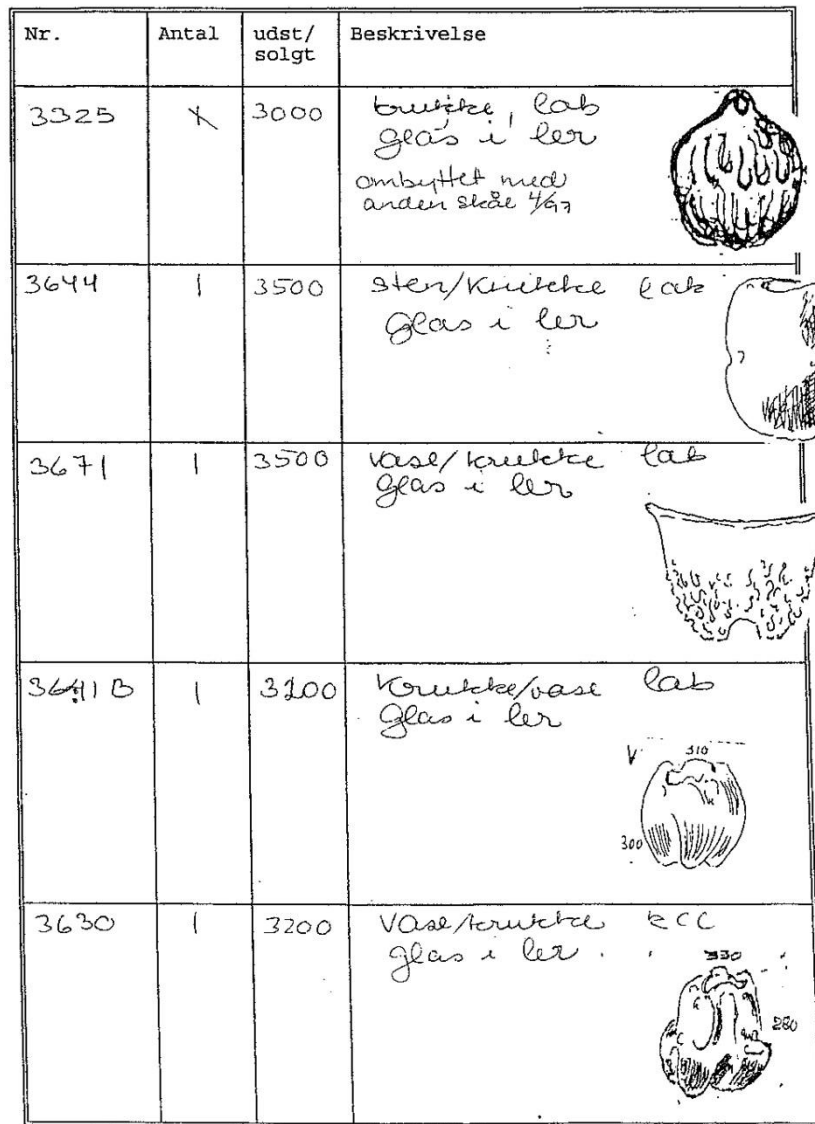 Nr. Antal udst/ Beskrivelse
solgt
3325 1 3000 krukke, lab
glas i ler
ombyttet med
anden skål 4/97
3644 1 3500 sten/krukke lab
glas i ler
3671 1 3500 vase/krukke lab
glas i ler
3641 B 1 3200 krukke/vase lab
glas i ler
310
300
3630 1 3200 vase/krukke
glas i ler
330
280